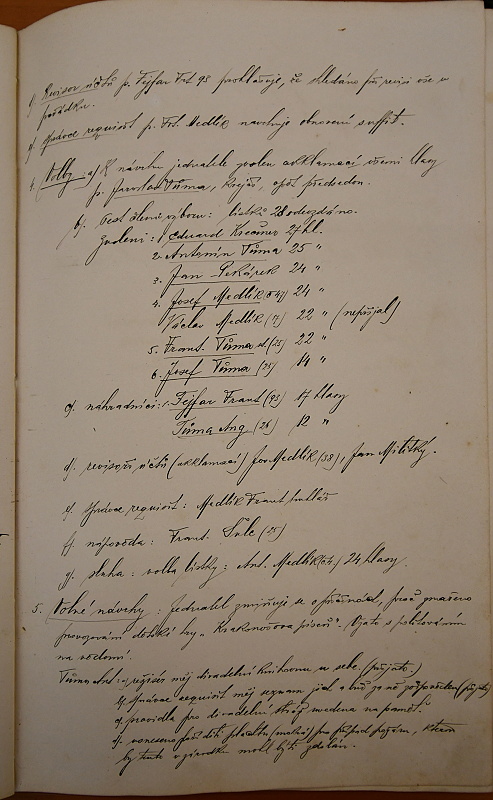 e) Revisor účtů p. Fejfar Frt 95 prohlašuje, že shledáno při revisi vše v
pořádku.
f) Správce requisit p. Frt. Medlík navrhuje obnovení suffit.
4. Volby: a) K návrhu jednatele zvolen akklamací všemi hlasy
p. Jaroslav Tůma, krejčí, opět předsedou.
b) Šest členů výboru: lístků 28 odevzdáno.
Zvoleni: 1. Eduard Kreamer 27 hl.
2. Antonín Tůma 25 "
3. Jan Pekárek 24 "
4. Josef Medlík 24 "
Václav Medlík (7) 22 " (nepřijal)
5. Frant. Tůma st. (25) 22 "
6. Josef Tůma (25) 14 "
c) náhradníci: 1. Fejfar Frant (95) 17 hlasy
Tůma Ant (26) 12 "
d) revisoři účtů (akklamací) Jos. Medlík (38), Jan Militký.
e) Správce requisit: Medlík Frant
f) nápověda: Frant. Šule (25)
g) sluha: volba lístky: Ant. Medlík 24 hlasy.
5. Volné návrhy: Jednatel zmiňuje se o příčinách, proč zmařeno
provozování dětské hry "Krakonošova píseň". Vzato s politováním
na vědomí.
Tůma Ant: a) režisér měj divadelní knihovnu u sebe. (přijato.)
b) Správce requisit měj seznam jich (přijato)
c) pravidla pro divadelní uvedena na paměť.
d) pro případ požáru,
by tento v zárodku mohl býti zdolán.